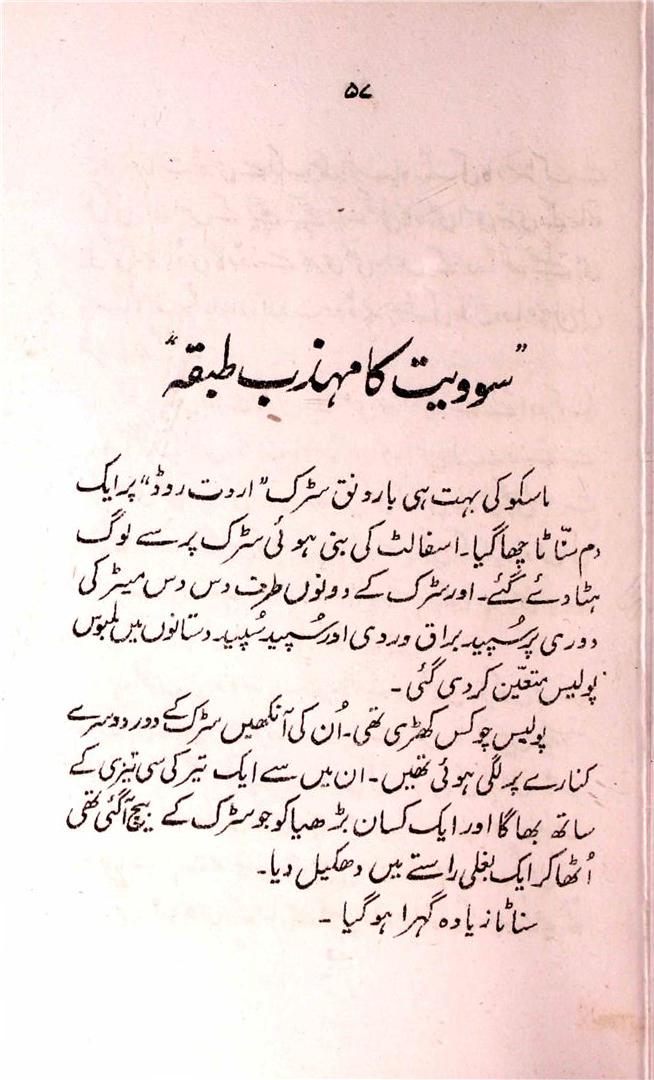 ۵۷
"سوویت کا مہذب طبقہ"
ماسکو کی بہت ہی بارونق سڑک "اردت روڈ" پر ایک
دم سنّاٹا چھا گیا۔ اسفالٹ کی بنی ہوئی سڑک پر سے لوگ
ہٹا دئے گئے۔ اور سڑک کے دونوں طرف دس دس میٹر کی
دوری پر سُپید براق وردی اور سُپید سُپید دستانوں میں ملبوس
پولیس متعّین کر دی گئی۔
پولیس چوکس کھڑی تھی۔ اُن کی آنکھیں سڑک کے دور دوسرے
کنارے پر لگی ہوئی تھیں۔ ان میں سے ایک تیر کی سی تیزی کے
ساتھ بھاگا اور ایک کسان بڑھیا کو جو سڑک کے بیچ آگئی تھی
اُٹھا کر ایک بغلی راستے میں دھکیل دیا۔
سناٹا زیادہ گہرا ہو گیا۔